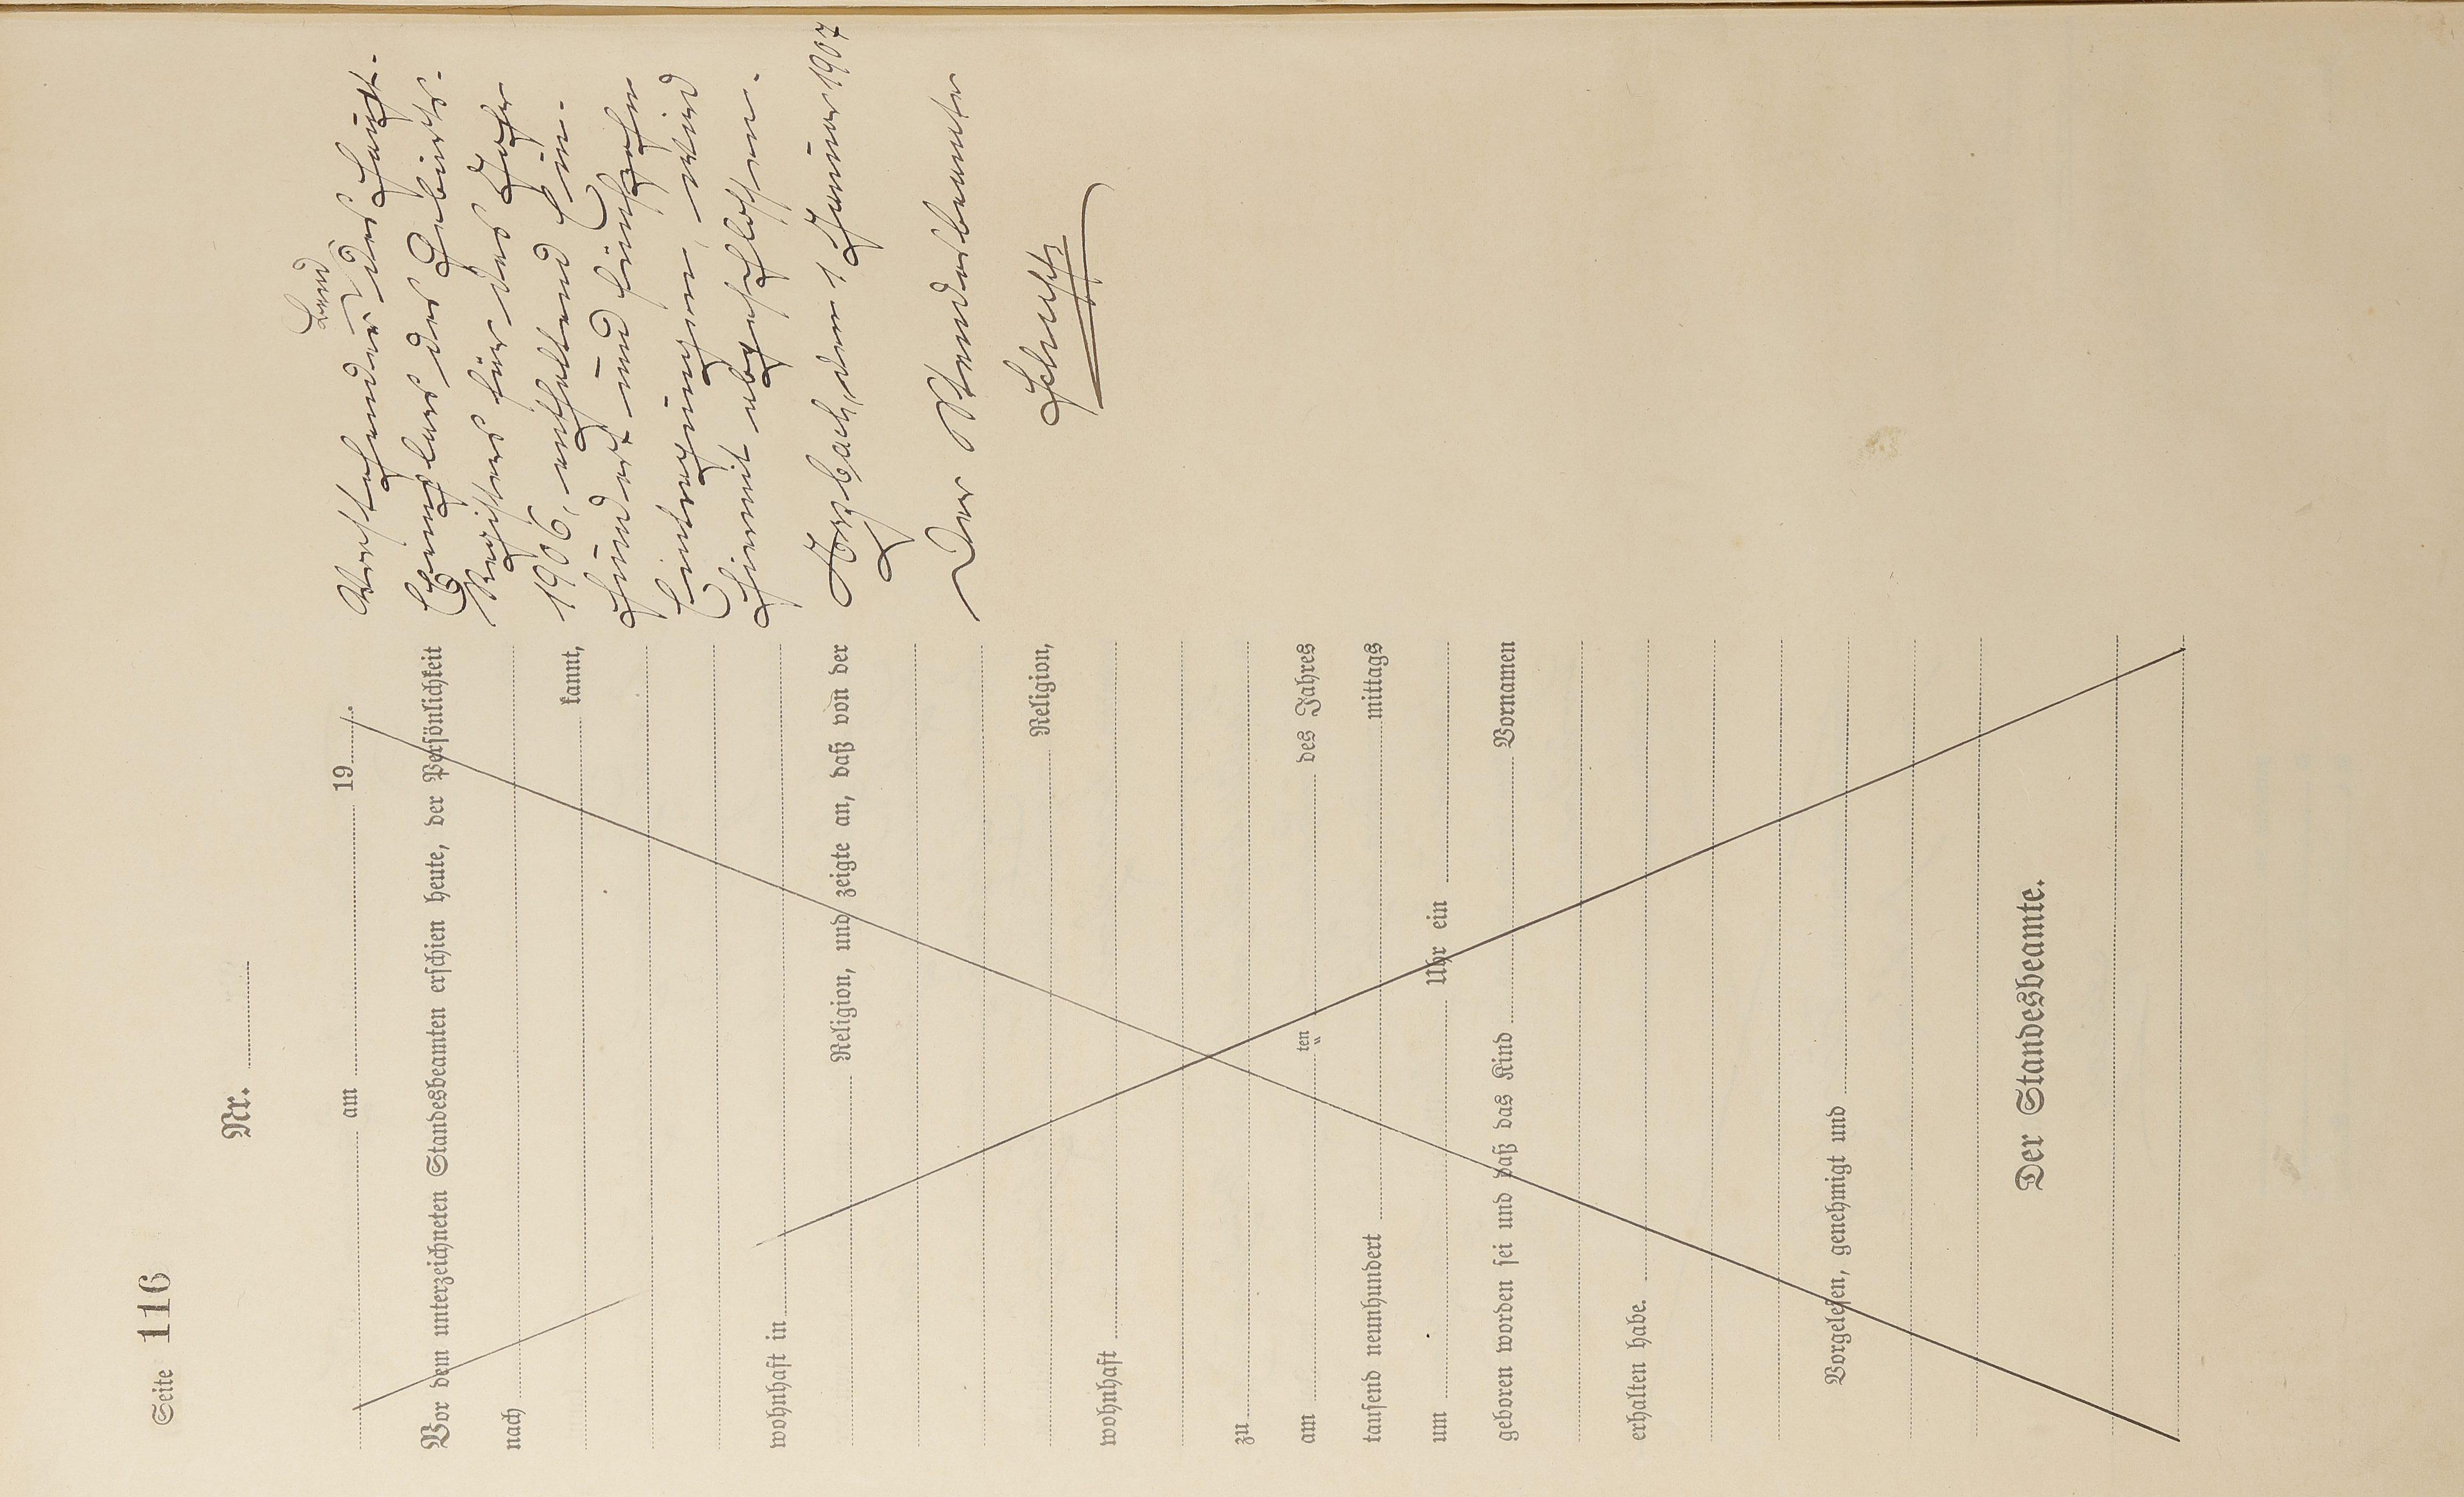 Seite 116
Nr.
am 19 .
Vor dem unterzeichneten Standesbeamten erschien heute, der Persönlichkeit
nach
kannt,
wohnhaft in
Religion, und zeigte an, daß von der
Religion,
wohnhaft
zu
am ten des Jahres
tausend neunhundert mittags
um Uhr ein
geboren worden sei und daß das Kind Vornamen
erhalten habe.
Vorgelesen, genehmigt und
Der Standesbeamte.
Band
Vorstehender des Haupt-
Exemplars des Geburts-
Registers für das Jahr
1906, enthaltend Ein-
hundert und fünfzehn
Eintragungen, wird
hiermit abgeschlossen.
Arzbach, den 1 Januar 1907
Der Standesbeamte